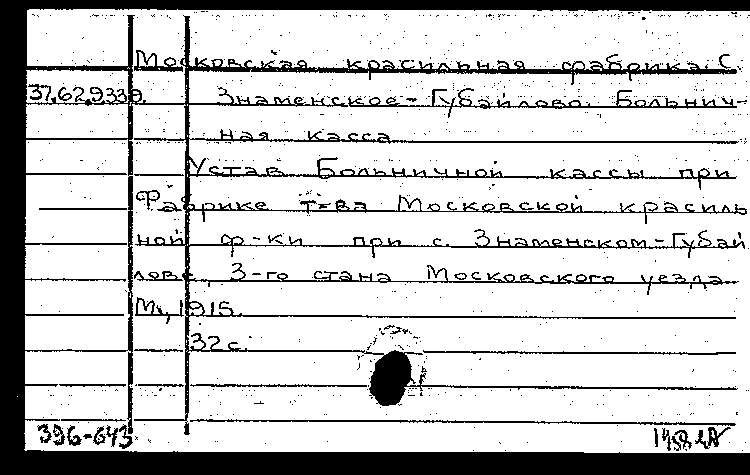 Московская красильная фабрика. С.
37.62.9339. Знаменское-Губайлово. Больнич-
ная касса
Устав Больничной кассы при
Фабрике т-ва Московской красиль
ной ф-ки при с. Знаменском-Губай
лове, 3-го стана Московского уезда
М., 1915.
32с.
396-643